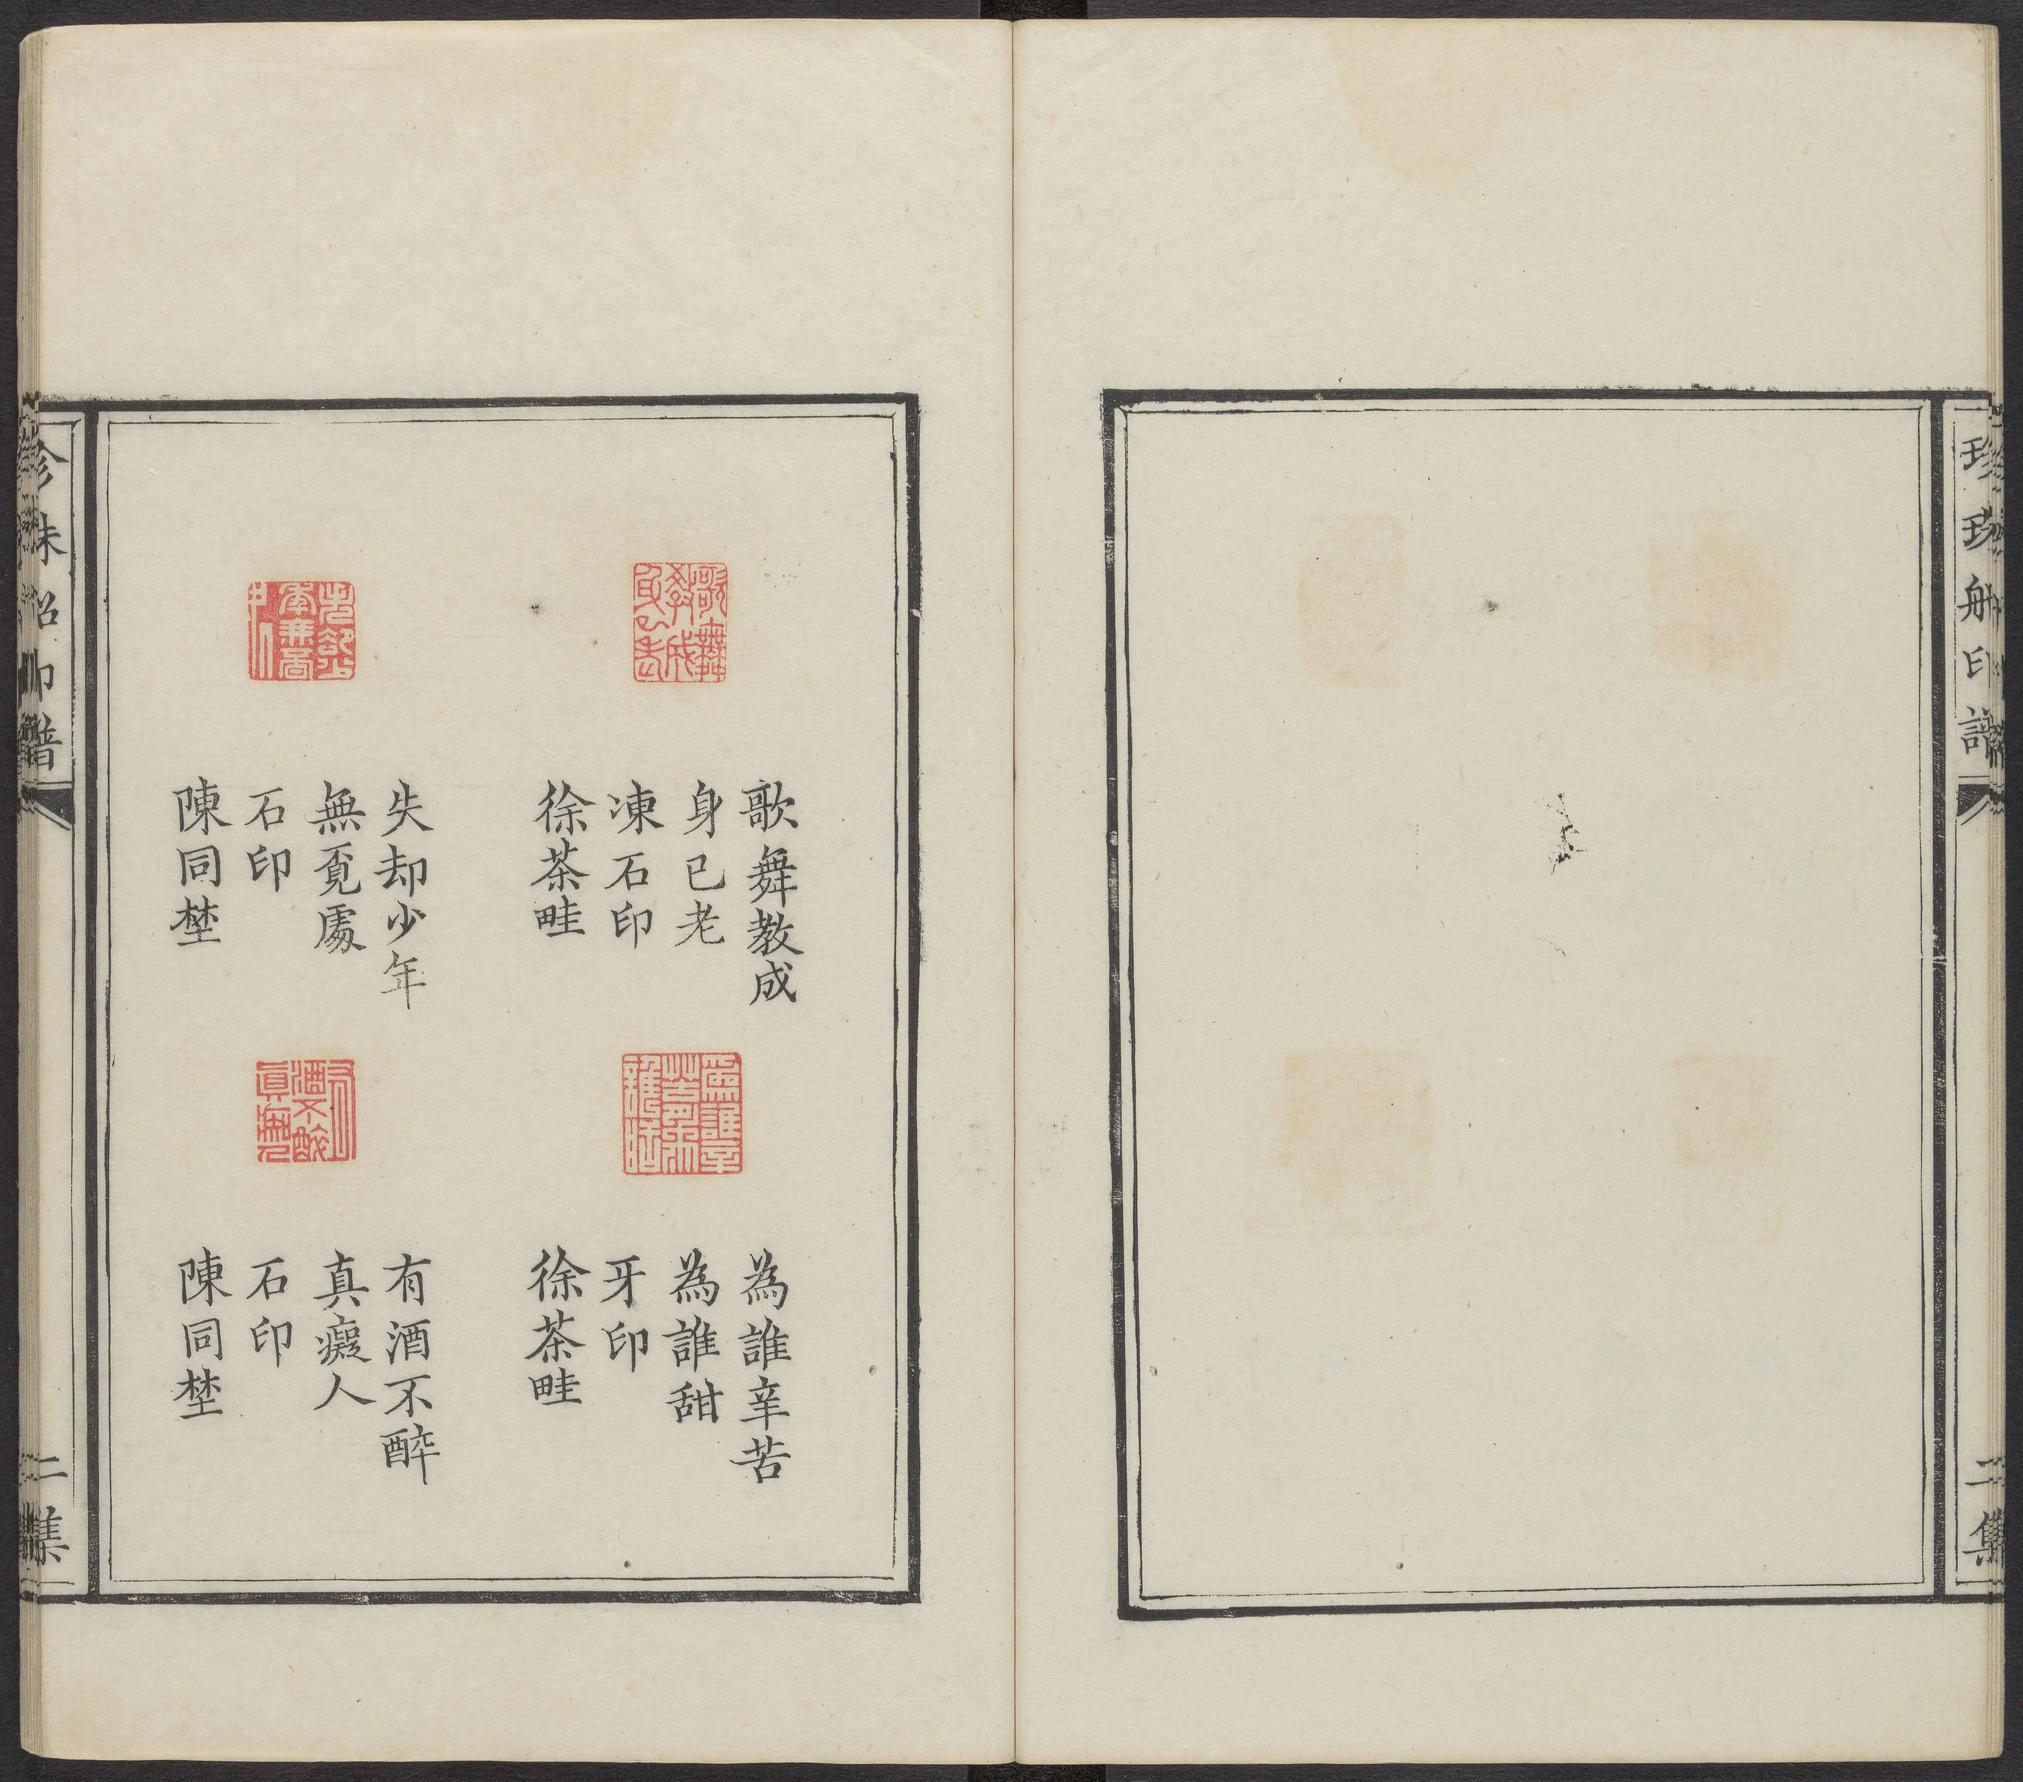 珍珠船印譜
二集
歌舞教成
身已老
凍石印
徐茶畦
為誰辛苦
為誰甜
牙印
徐茶畦
失却少年
無覔處
石印
陳同埜
有酒不醉
真癡人
石印
陳同埜
珍珠船印譜
二集